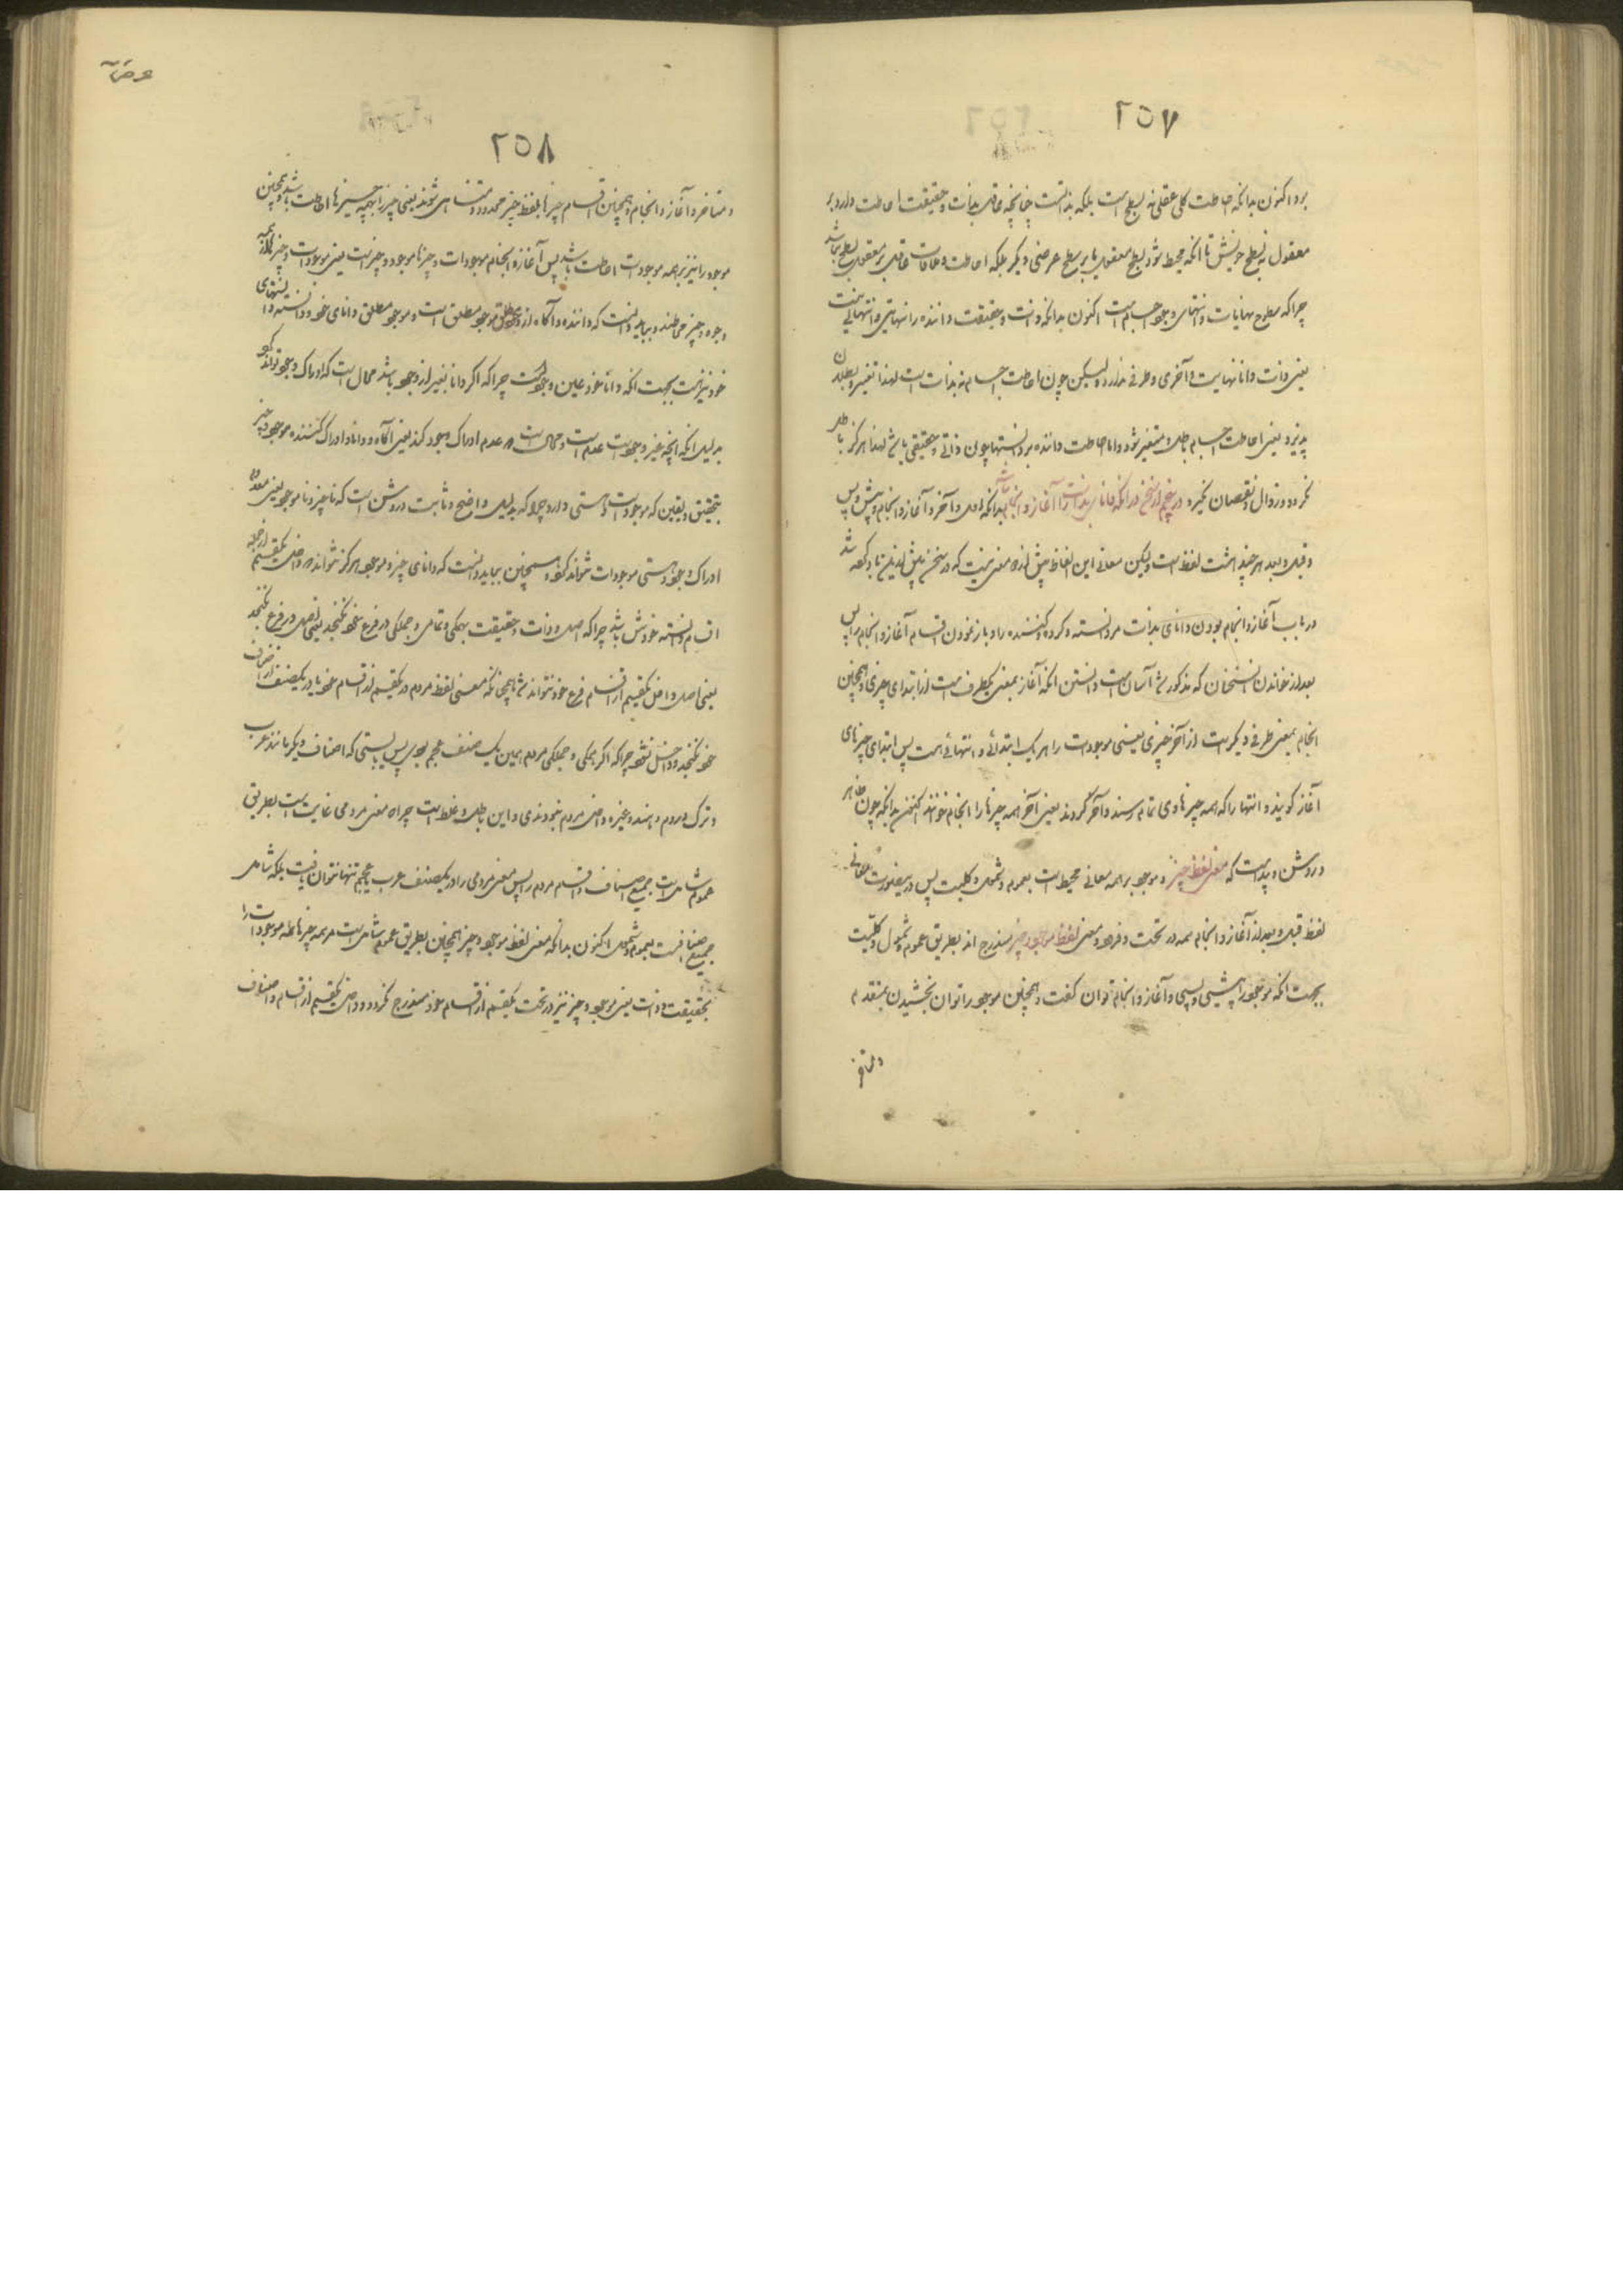 ۲۵۷
برد اکنون بدانکه احاطت کلی عقلی نه بسطح است بلکه بذاتست چنانچه عاقل بذات و حقیقت احاطت دارد بر
معقول نه بسطح خویش تا آنکه محیط شود بسطح معقول یا بر سطح عرضی دیگر بلکه احاطت و ملاقات عاقل بر معقول بسطح نباشد
چرا که سطوح نهایات و انتهای وجود اجسام است اکنون بدانکه ذات و حقیقت داننده را نهایتی و انتهائی نیست
یعنی ذات دانا نهایت و آخری و طرفی ندارد ولیکن چون احاطت اجسام نه بذات است لهذا تغییر و بطلان
پذیرد یعنی احاطت اجسام باطل و متغیر شود و اما احاطت داننده بر دانستها چون ذاتی و حقیقی باشد لهذا هرگز باطل
نگردد و زوال و نقصان نگیرد در سخن در آنکه دانای بذات را آغاز و انجام نباشد بدانکه اول و آخر و آغاز و انجام و پیش و پس
و قبل و بعد هر چند هشت لفظ است ولیکن معانی این الفاظ بیش از دو معنی نیست که در سخن پیش ازین یاد کرده شد
در باب آغاز و انجام بودن دانای بذات مر دانسته و کرده و کننده را و باز نمودن اقسام آغاز و انجام را پس
بعد از خواندن آن سخنان که مذکور شد آسان است دانستن آنکه آغاز بمعنی یکطرف است از ابتدای چیزی و همچنین
انجام بمعنی طرفی دیگر است از آخر چیزی یعنی موجودات را هر یک ابتدائی و انتهائی هست پس ابتدای چیزهای
آغاز گویند و انتها را که همه چیزها وی تمام رسند و آخر گردند یعنی آخر همه چیزها را انجام خوانند اکنون بدانکه چون ظاهر
و روشن و پیداست که معنی لفظ چیز و موجود بر همه معانی محیط است بعموم و شمول و کلیت پس درینصورت معانی
لفظ قبل و بعد از آغاز و انجام همه در تحت و فرود معنی لفظ موجود و چیز مندرج اند بطریق عموم و شمول و کلیّت
بجهت آنکه موجود را پیشی و پسی و آغاز و انجام توان گفت و همچنین موجود را توان بخشیدن بمتقدم
و متاخر
۲۵۸
و متاخر و آغاز و انجام و همچنین اقسام چیزها بلفظ چیز محدود و متناهی شوند یعنی چیز را بهمه چیزها احاطت باشد و همچنین
موجود را نیز بر همه موجودات احاطت باشد پس آغاز و انجام موجودات و چیزها موجود و چیزست یعنی موجودات و چیزها را همه
وجود و چیز محیطند و بباید دانست که داننده و آگاه از وجود مطلق موجود مطلق است و موجود مطلق دانای خود و دانسته و انتهای
خود نیز هست بجهت آنکه دانا خود عین وجودست چرا که اگر دانا بغیر از وجود باشد محال است که ادراک وجود تواند کرد
بدلیل آنکه آنچه غیر وجودست عدم است و محال است که عدم ادراک وجود کند یعنی آگاه و دانا و ادراک کننده موجود چیز
بتحقیق و یقین که موجودست و هستی دارد چرا که بدلیل واضح و ثابت و روشن است که ناچیز و ناموجود یعنی معدوم
ادراک وجود و هستی موجودات نتواند کرد و همچنین بباید دانست که دانای چیز و موجود هرگز نتواند که داخل یکقسم از جمله
اقسام دانسته خودش باشد چرا که اصل و ذات و حقیقت بهمگی و تمامی و جملگی در فرع خود نگنجد یعنی اصل در فرع نگنجد
یعنی اصل داخل یکقسم از اقسام فرع خود نتواند شد همچنانکه معنی لفظ مردم در یکقسم از اقسام خود یا در یکصنف از اصناف
خود نگنجد و داخل نشود چرا که اگر همگی و جملگی مردم همین یک صنف عجم بودی پس بایستی که اصناف دیگر مانند عرب
و ترک و روم و هند و غیره داخل مردم نبودندی و این باطل و غلط است چرا که معنی مردمی غایت است بطریق
عموم شامل است جمیع اصناف و اقسام مردم را پس معنی مردمی را در یکصنف عرب یا عجم تنها نتوان یافت بلکه شامل
جمیع اصنافست بعموم و شمول اکنون بدانکه معنی لفظ موجود و چیز همچنین بطریق عموم شامل است مر همه چیزها و همه موجودات را
بحقیقت و ذات یعنی موجود و چیز نیز در تحت یکقسم از اقسام خود مندرج نگردد و داخل یکقسم از اقسام و اصناف